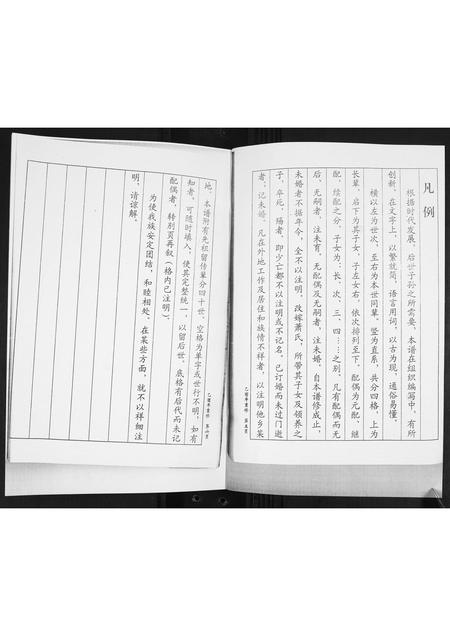 凡例
根据时代发展，后世子孙之所需要，本谱在组织编写中，有所
创新。在文字上，以繁就简，语言用词，以古为现，通俗易懂。
横以左为世次，至右为本世同辈。竖为直系，共分四格，上为
长辈，启下为其子女，子左女右，依次排列至下。配偶为元配、继
配，续配之分，子女为：长、次、三、四……之别，凡有配偶而无
后，无嗣者，注未育。无配偶及无嗣者，注未婚。自本谱修成止，
未婚者不据年令，全不以注明。改嫁萧氏，所带其子女及领养之
子，卒死，殇者，即少亡都不以注明或不记名。已订婚而未过门逝
者，记未婚。凡在外地工作及居住和族情不祥者，以注明他乡某
乙酉年重修 第五页
地。本谱附有先祖留传辈分四十世。空格为单字或世行不明，如有
知者，可随时填入，使其完整统一，以留后世。底格有后代而未记
配偶者，转别页再叙（格内已注明）。
为使我族安定团结，和睦相处。在某些方面，就不以祥细注
明，请谅解。
乙酉年重修 第六页